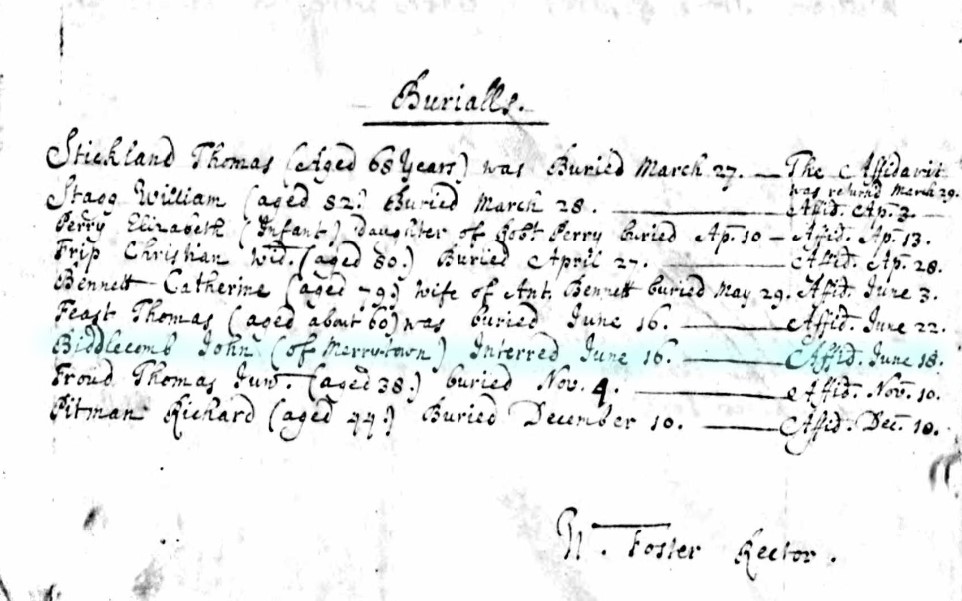 Burialls.
Stickland Thomas (Aged 68 Years) was Buried March 27. — The Affidavit
was returnd March 29.
Stagg William (aged 82.) Buried March 28. — Affid. Ap. 3.
Perry Elizabeth (Infant) daughter of Robt Perry buried Ap. 10 — Affid. Ap. 13.
Frip Christian Wid. (aged 80.) Buried April 27. — Affid. Ap. 28.
Bennett Catherine (aged 79.) Wife of Ant. Bennett buried May 29. Affid. June 3.
Feast Thomas (aged about 60) was buried June 16. — Affid. June 22.
Biddlecomb John (of Merrytown) Interred June 16. — Affid. June 18.
Froud Thomas Junr. (aged 38.) buried Nov. 4. — Affid. Nov. 10.
Pitman Richard (aged 44.) Buried December 10. — Affid. Dec. 10.
W. Foster Rector.